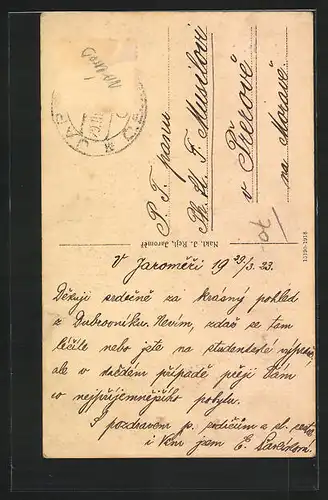 V Jaroměři 19 29/3. 23.
Děkuji srdečně za krásný pohled
z Dubrovníku. Nevím, zdaž se tam
léčíte nebo jste na studentské
ale v každém případě přeji Vám
co nejpříjemnějšího pobytu.
S pozdravem p. rodičům a sl.
i Vám jsem E.
P. T. panu
F. Musilovi
v Přerově
na Moravě.
Nakl. J. Rejl, Jaroměř